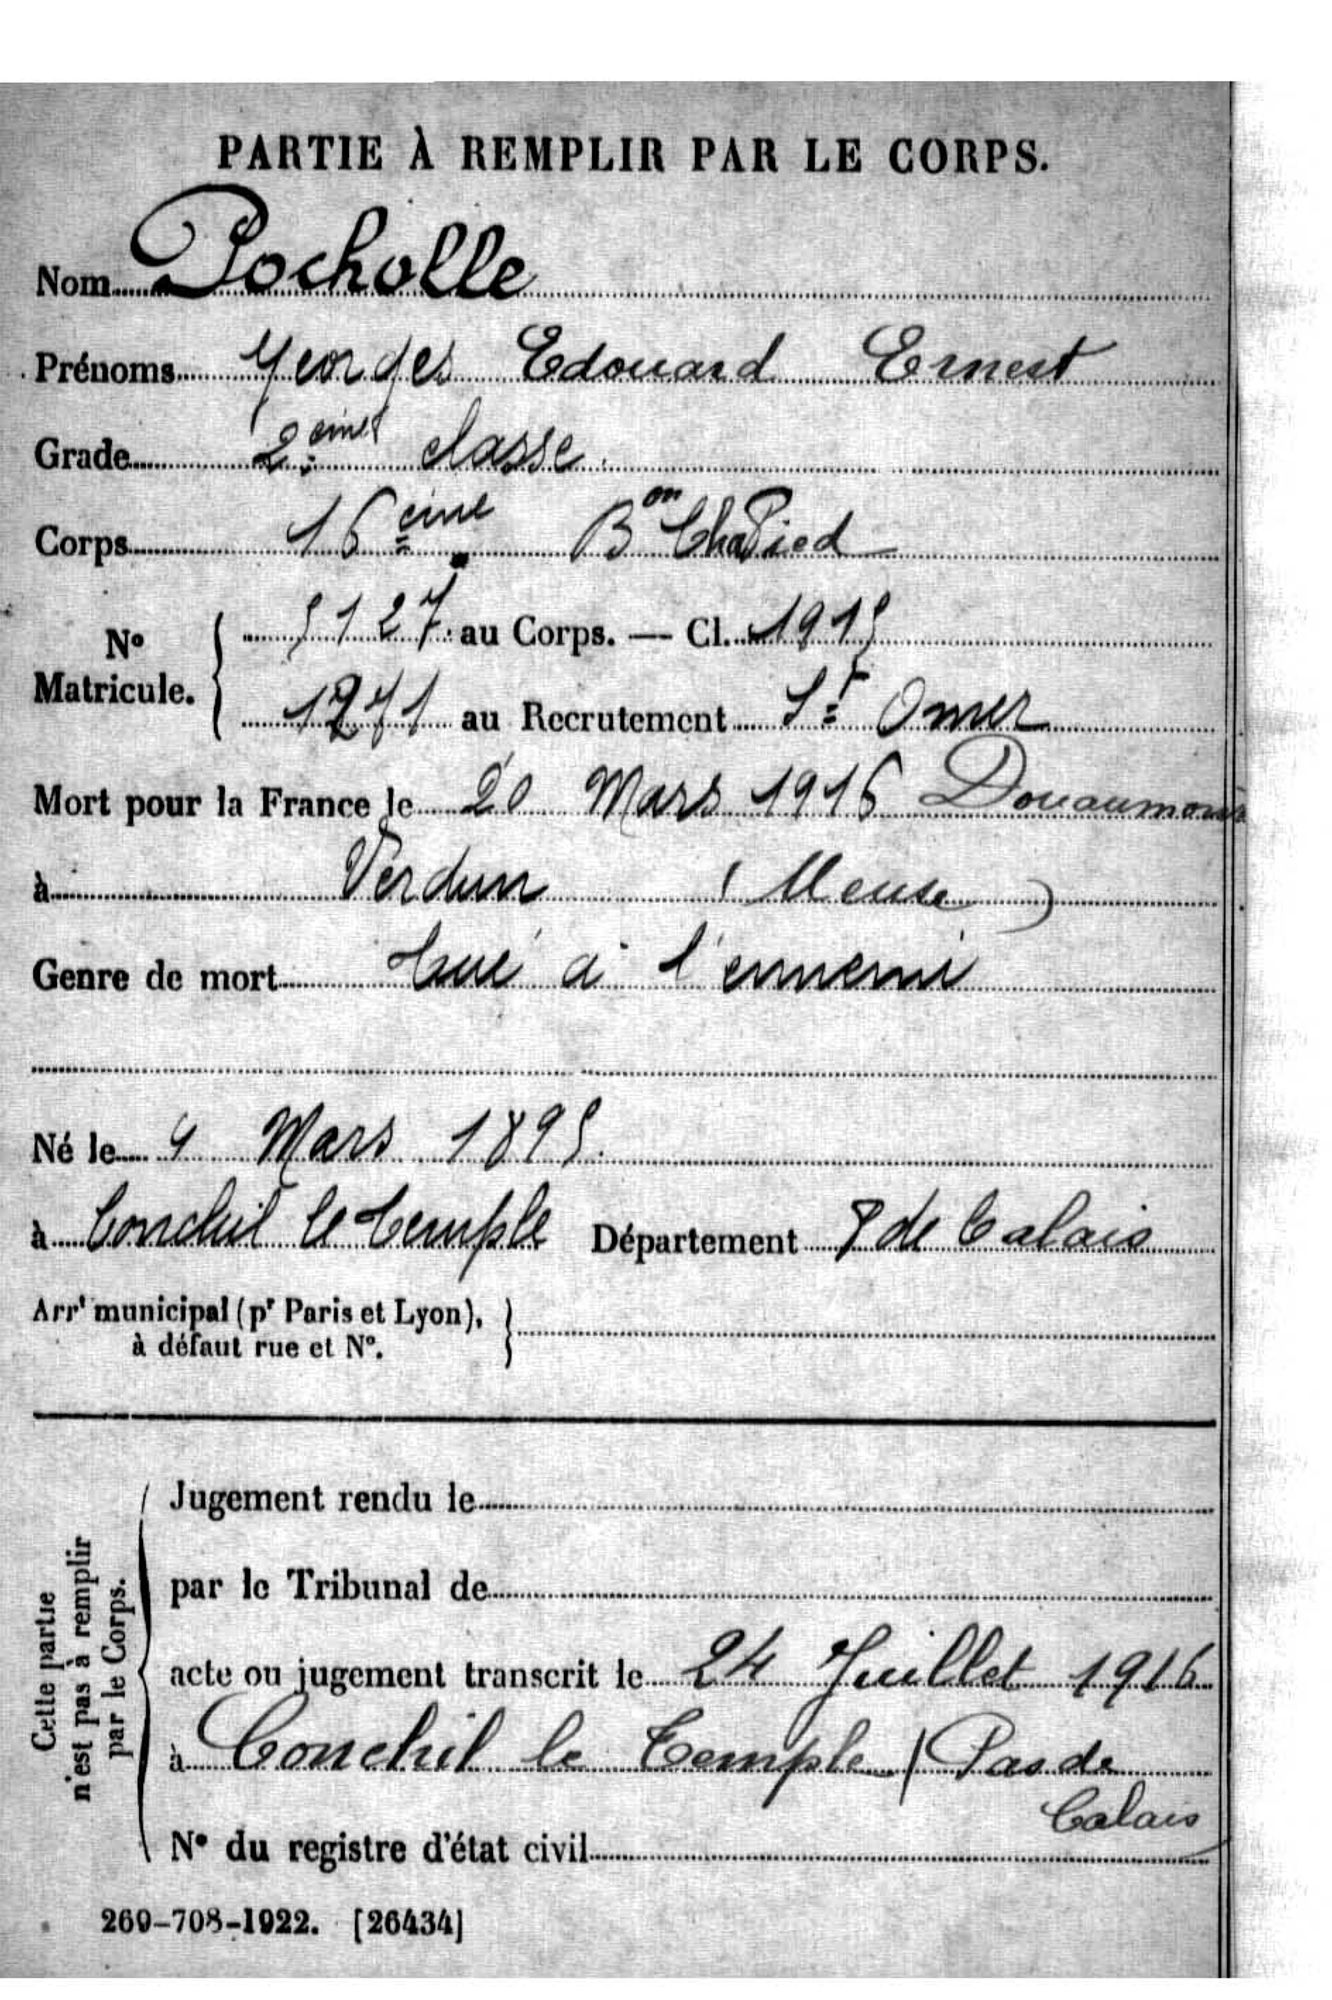 PARTIE À REMPLIR PAR LE CORPS.
Nom Pocholle
Prénoms Georges Edouard Ernest
Grade 2ème classe
Corps 16ème Bon Cha Pied
No Matricule. 5127 au Corps. — Cl. 1915
1271 au Recrutement St Omer
Mort pour la France le 20 Mars 1916 Douaumont
à Verdun (Meuse)
Genre de mort tué à l'ennemi
Né le 4 Mars 1895
à Conchil le Temple Département P de Calais
Arrt municipal (pr Paris et Lyon),
à défaut rue et No.
Cette partie
n'est pas à remplir
par le Corps.
Jugement rendu le
par le Tribunal de
acte ou jugement transcrit le 24 Juillet 1916
à Conchil le Temple / Pas de
Calais
No du registre d'état civil
269-708-1922. [26434]